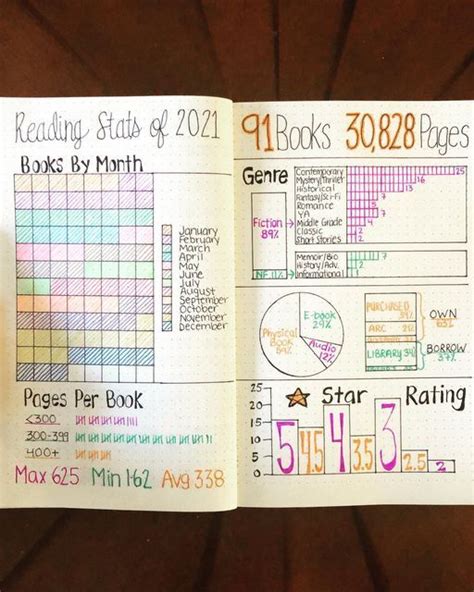 Reading Stats of 2021
Books By Month
January
February
March
April
May
June
July
August
September
October
November
December
Pages Per Book
<300
300-399
400+
Max 625 Min 162 Avg 338
91 Books 30,828 Pages
Genre
Fiction
89%
Contemporary 25
Mystery/Thriller 16
Historical 13
Fantasy/Sci-Fi
Romance
YA
Middle Grade 4
Classic 2
Short Stories 2
NF 11%
Memoir/Bio
History/Adv.
Informational
Physical
Book
59%
E-book
29%
Audio
12%
PURCHASED
ARC
LIBRARY 34%
OWN
BORROW
37%
Star Rating
25
20
15
10
5
0
5 4.5 4 3.5 3 2.5 2